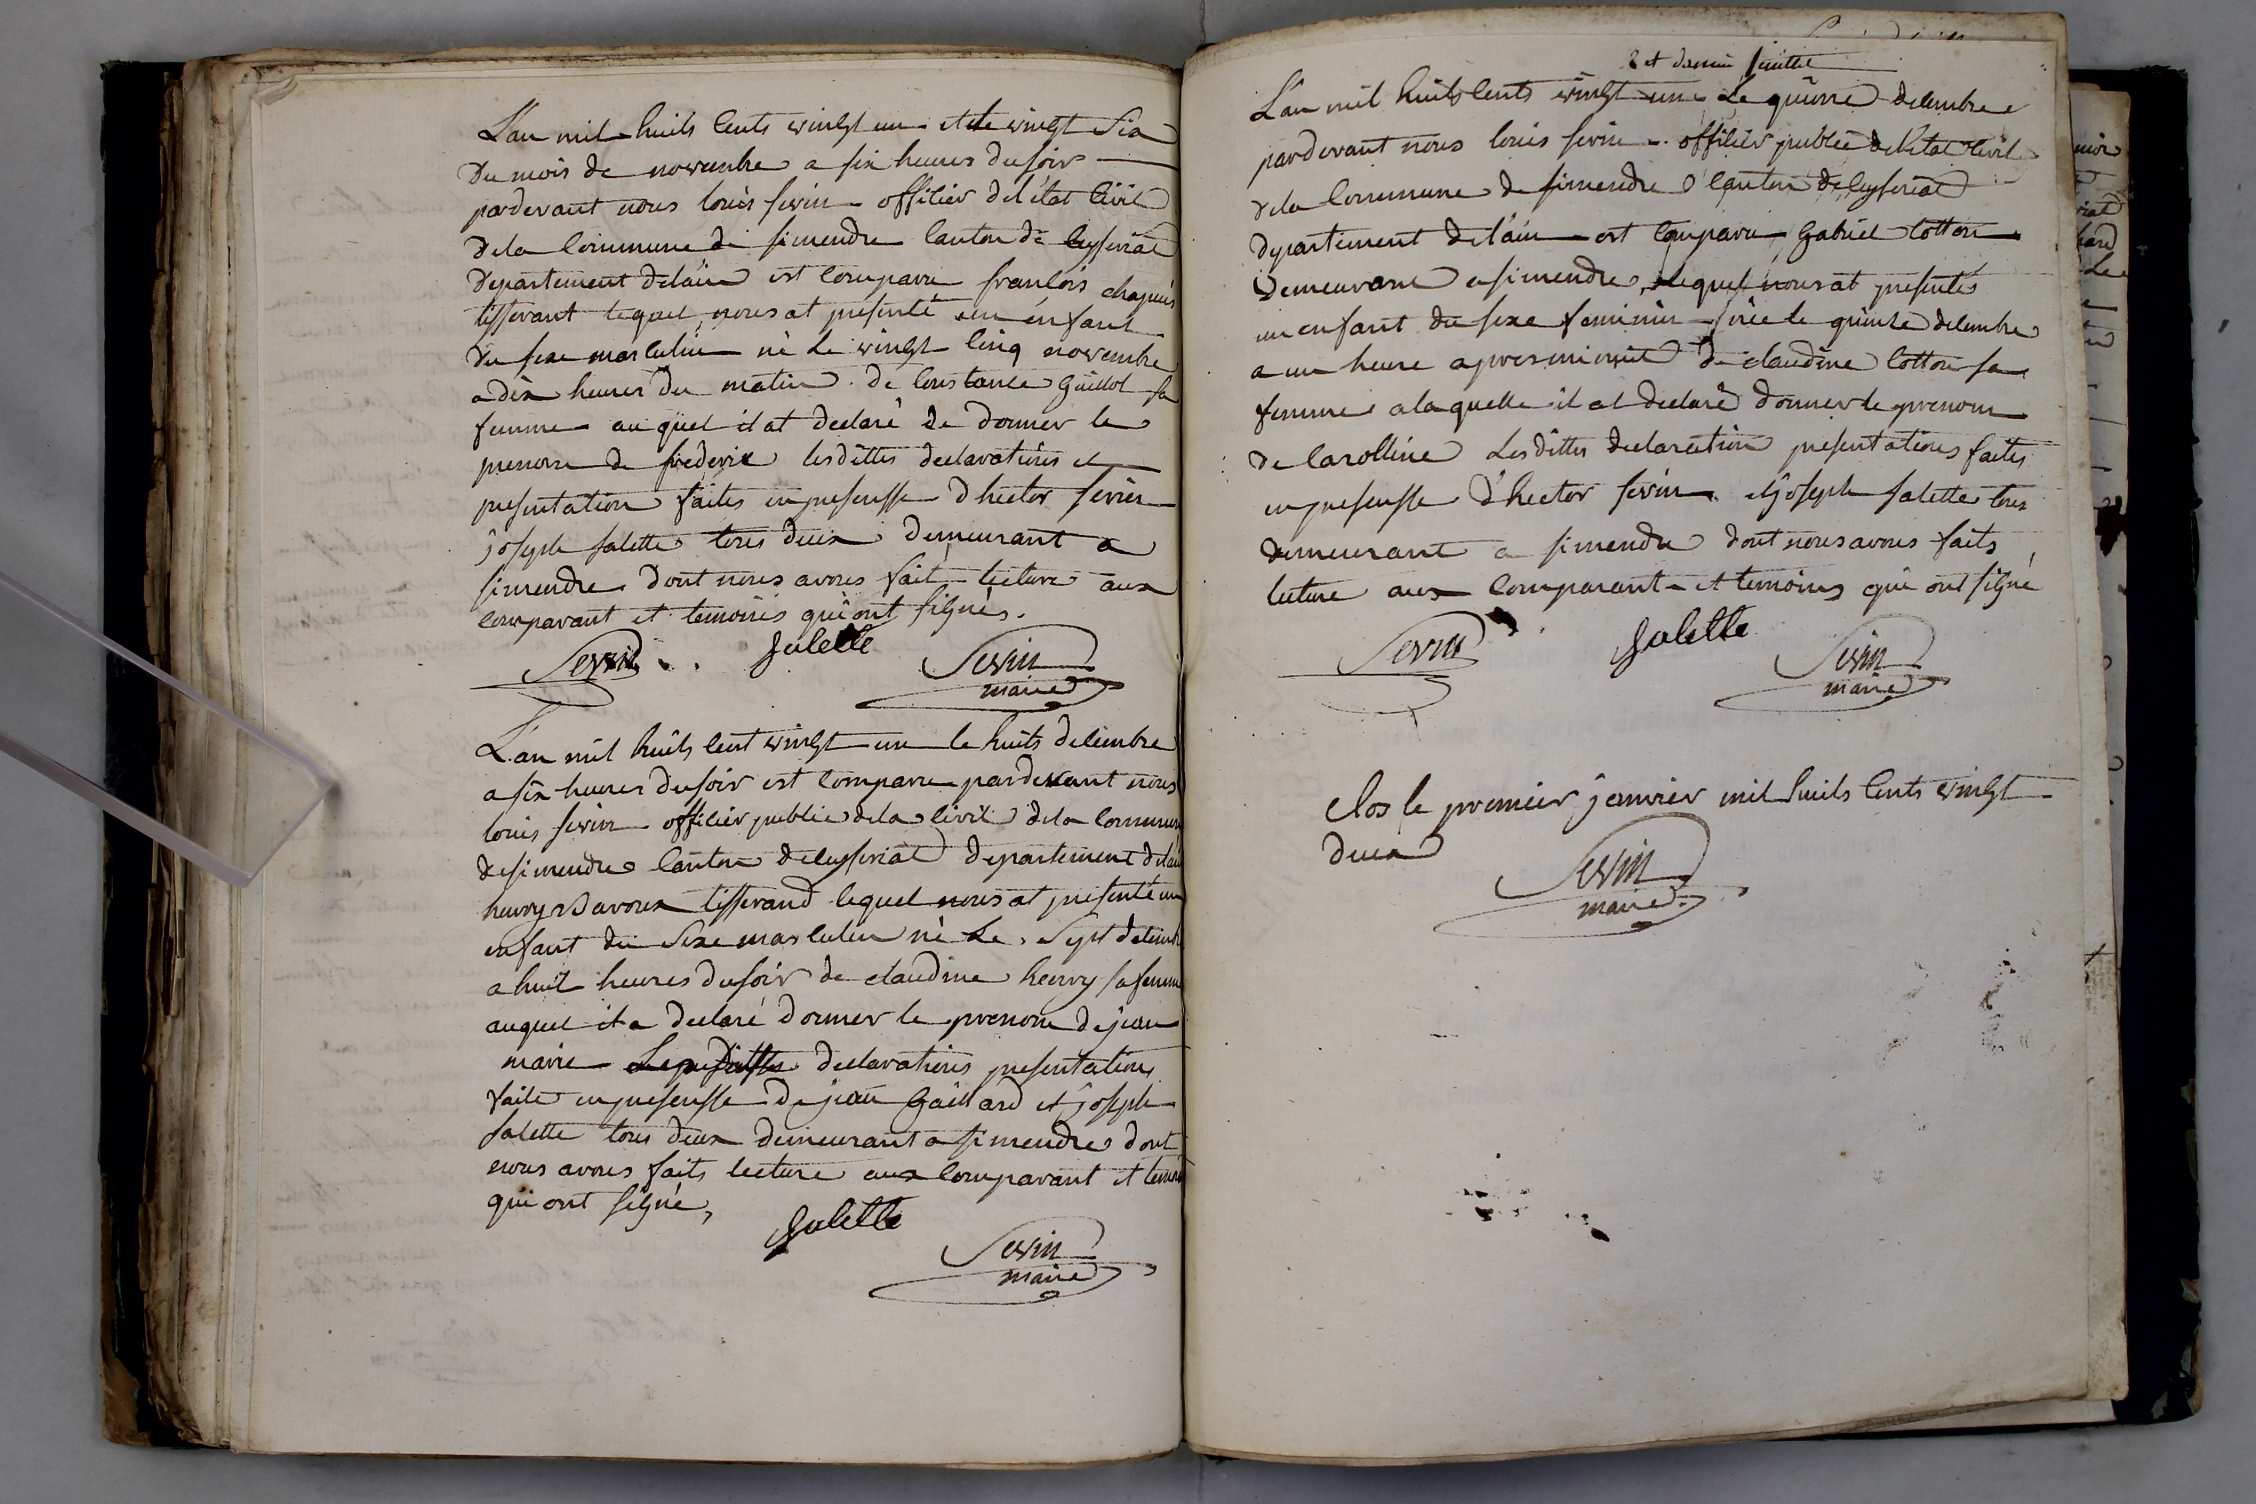 L'an mil huits cents vingt un et le vingt six
du mois de novembre a six heures du soir
pardevant nous louis sevin officier de l'état civil
de la commune de simendre canton de ceyseriat
departement de l'ain est comparu francois chapuis
tisserant lequel nous at présenté un enfant
du sexe masculin né le vingt cinq novembre
a dix heures du matin de constance Guillot sa
femme au quel il at declaré de donner le
prenom de frederix lesdittes declarations et
presentation faites en presensse d'hector sevin
joseph salette tous deux demeurant a
simendre dont nous avons fait lecture aux
comparant et temoins qui ont signés.
Sevin Salette Sevin
maire
L'an mil huits cent vingt un le huits decembre
a six heures du soir est comparu pardevant nous
louis sevin officier public de la civil de la commune
de simendre canton de ceyseriat departement de l'ain
henry tisserand lequel nous at presenté un
enfant du sexe masculin né le sept decembre
a huit heures du soir de claudine henry sa femme
auquel il a declaré donner le prenom de jean
marie declarations presentations
faite en presensse de jean Gaillard et joseph
salette tous deux demeurant a simendre dont
nous avons faits lecture aux comparant et temoins
qui ont signé,
Salette
Sevin
maire
2 et dernier feuillet
L'an mil huits cents vingt un le quinze decembre
pardevant nous louis sevin officier public de l'état civil
de la commune de simendre canton de ceyseriat
departement de l'ain est comparu Gabriel cotton
demeurant a simendre, lequel nous at presentés
un enfant du sexe feminin née le quinze decembre
a un heure apres minuit de claudine cotton sa
femme a laquelle il at declaré donner le prenom
de carolline lesdittes declaration presentations faites
en presensse d'hector sevin et joseph salette tous
demeurant a simendre dont nous avons faits
lecture aux comparant et temoins qui ont signé
Sevin Salette Sevin
maire
clos le premier janvier mil huits cents vingt
deux
Sevin
maire